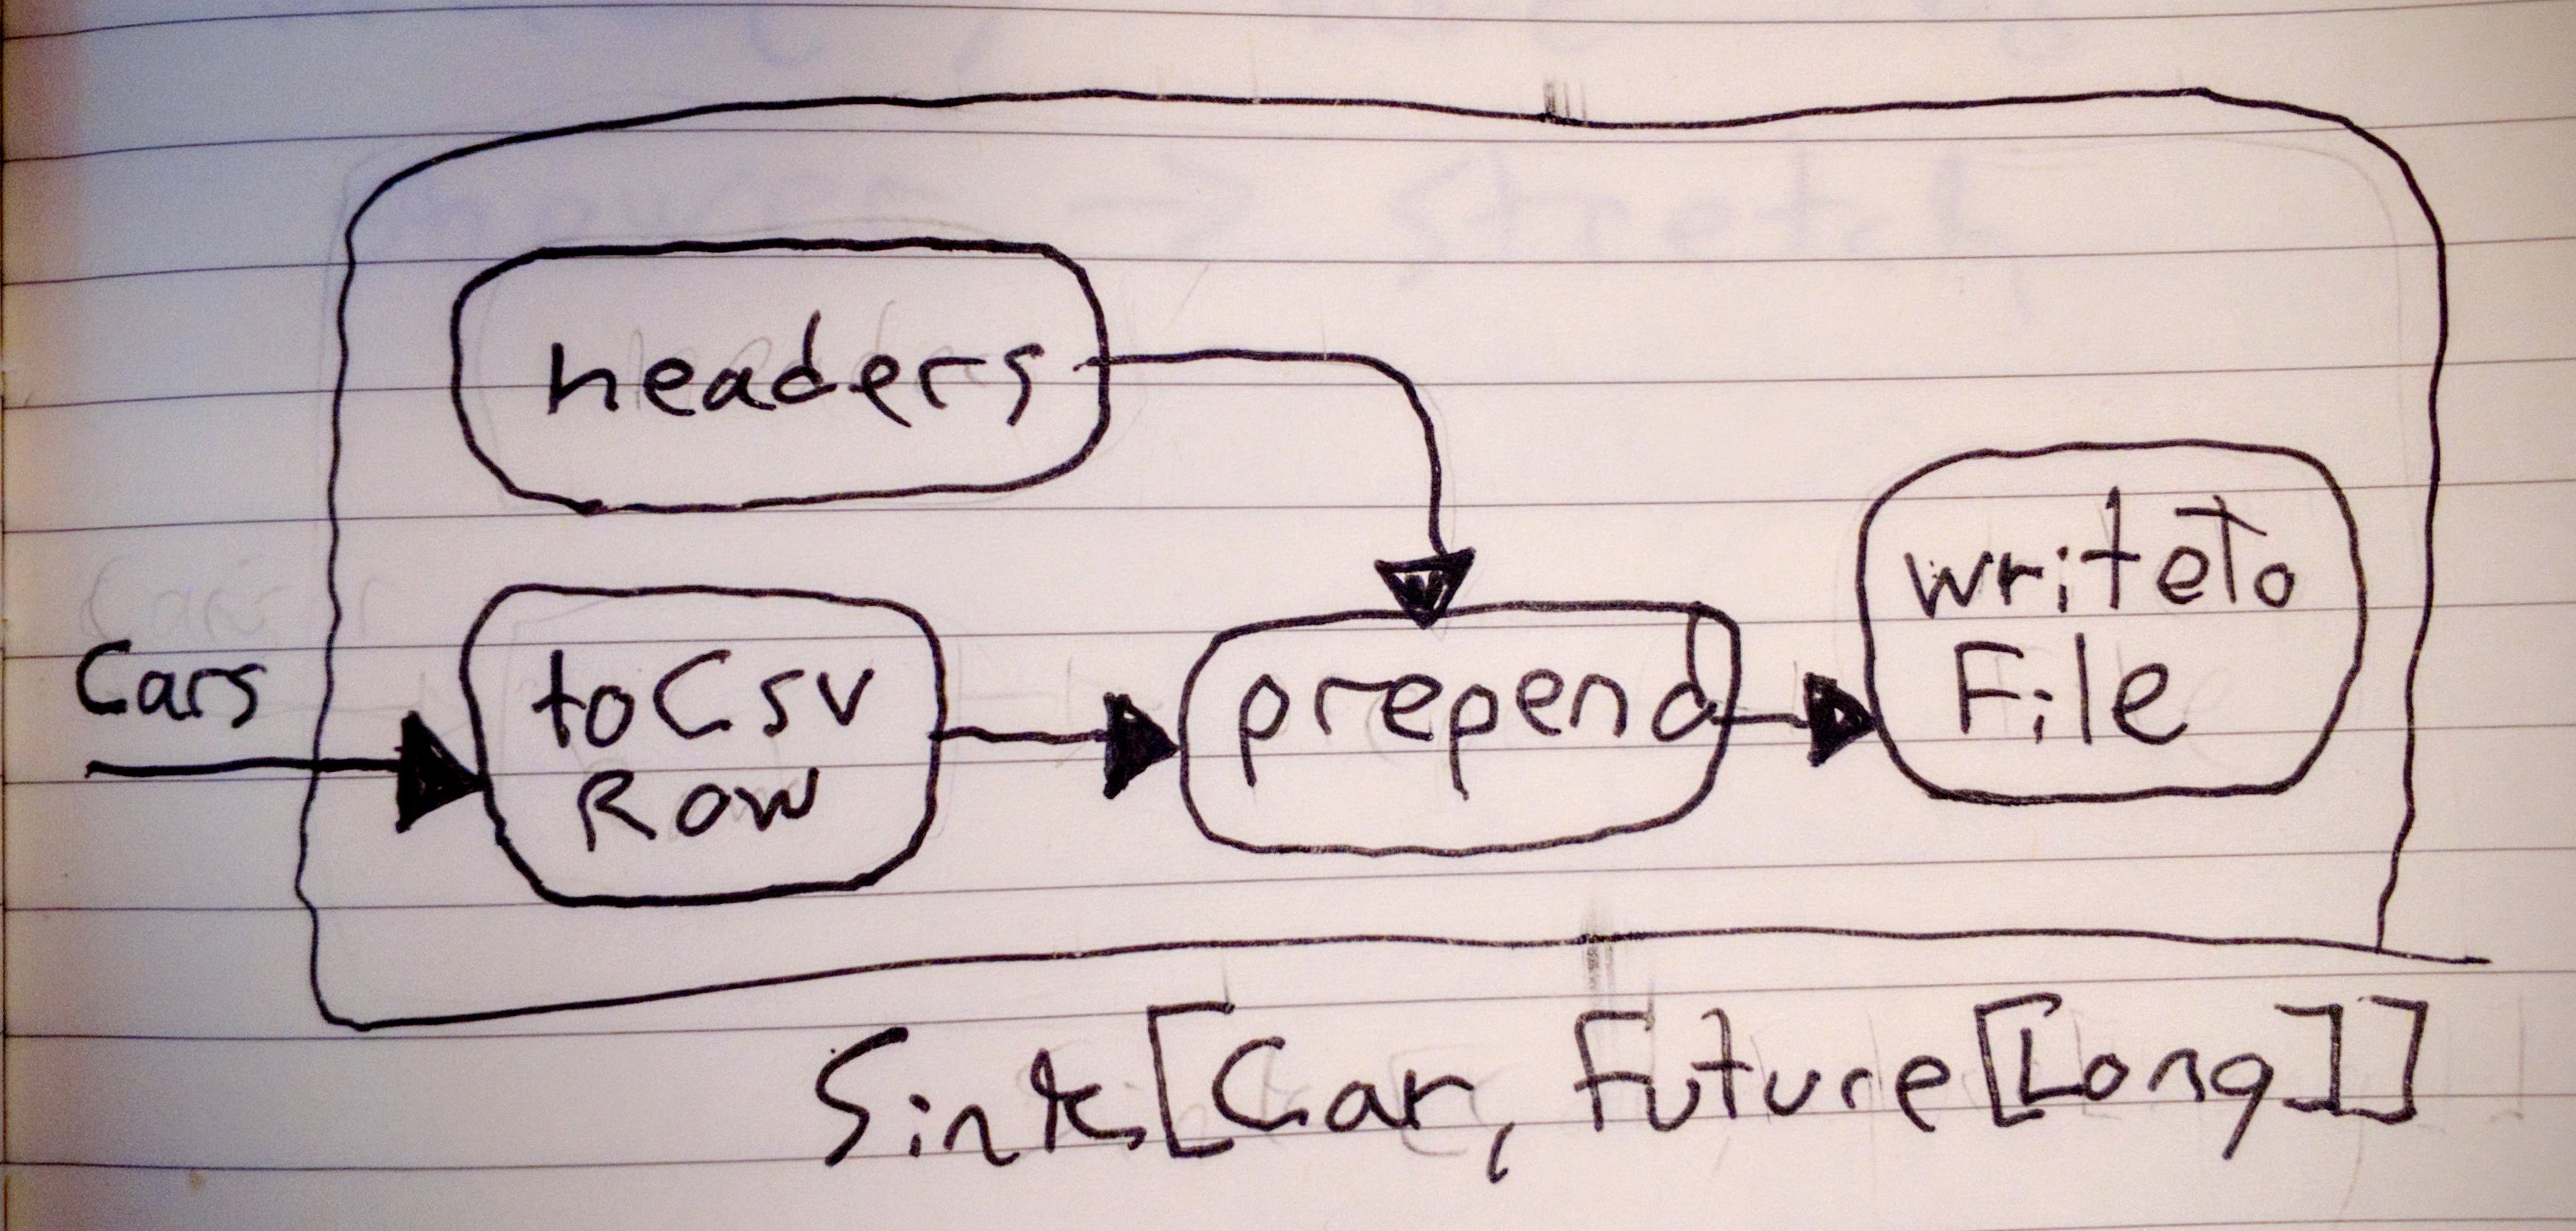 headers
Cars
toCsv
Row
prepend
writeTo
File
Sink[Car, Future[Long]]